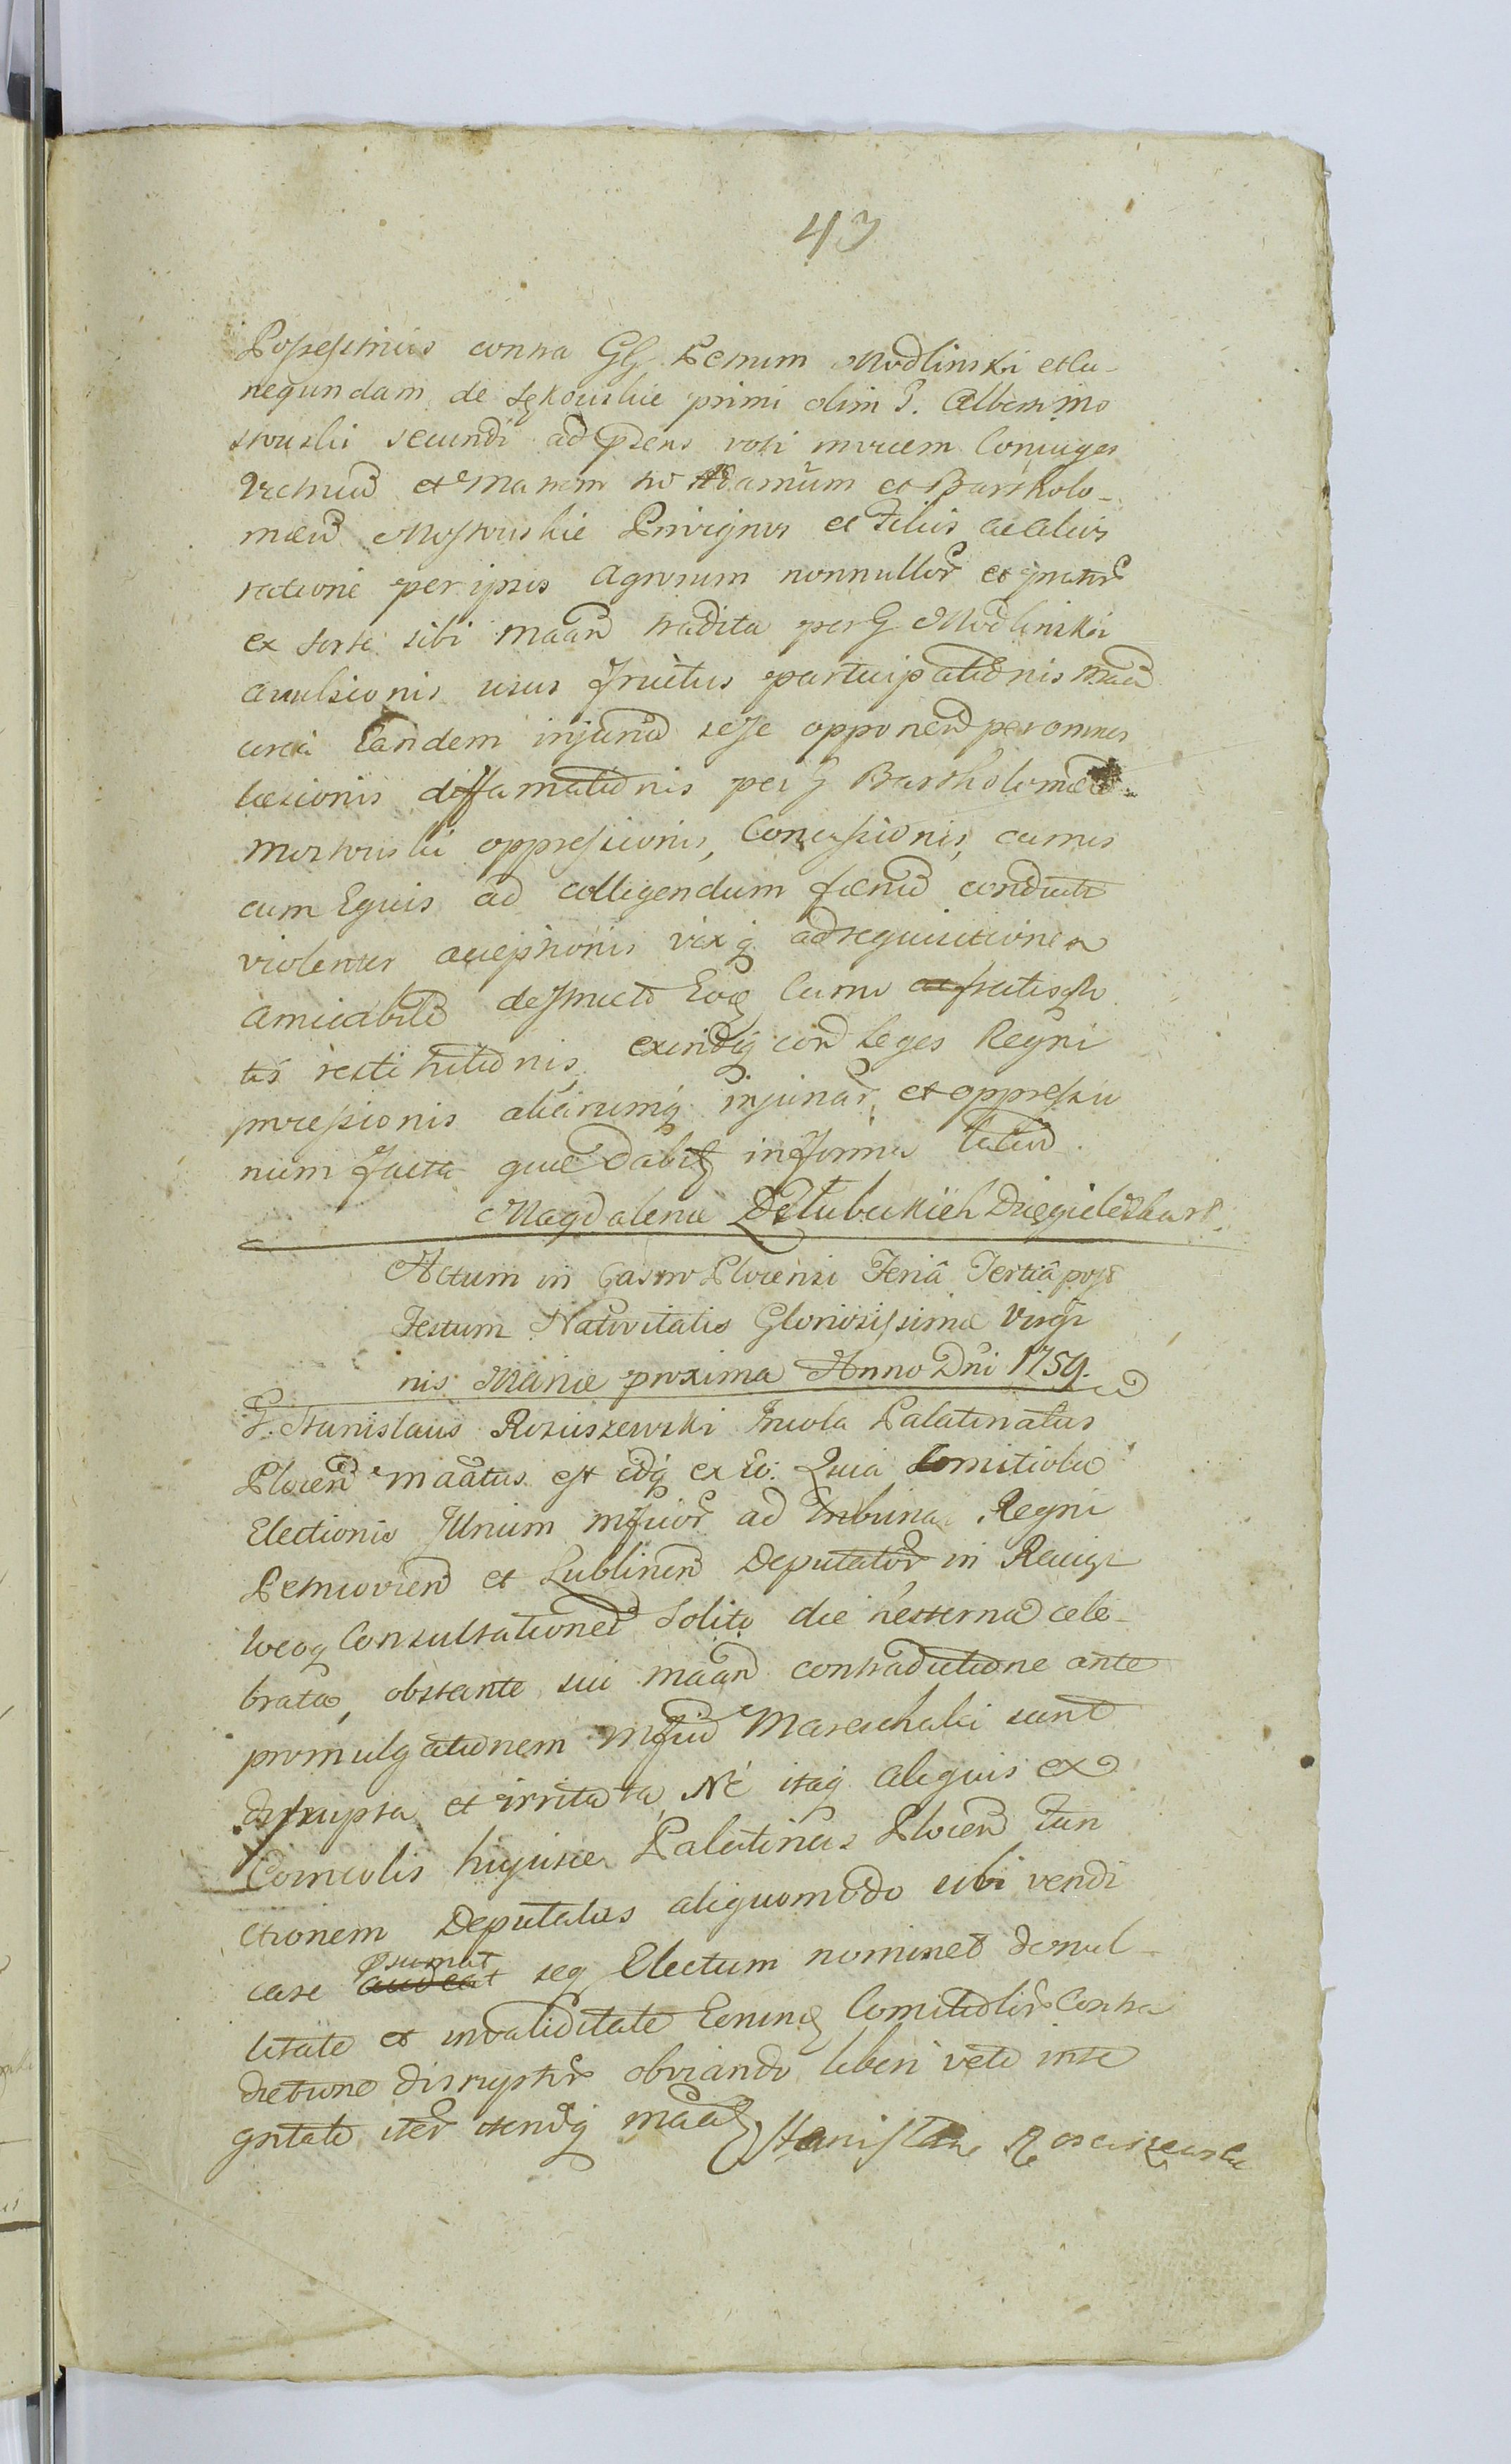 43
Possessivus contra GG Petrum Modlinski et Cu-
negundam de Sękowskie primi olim G. Alberti Mo
stowski secundi ad psens voti invicem Conjuges
et Matrem Adamum et Bartholo-
maeū Mostowskie Privignos et Filios ac alios
ratione per ipsos Agrorum nonnullor et pratōr
ex sorte sibi Maan tradita per G Modlinski
avulsionis usus fructus participationis
circa Eandem injuriā sese opponen per omnes
laesionis diffamationis per G Bartholomaeū
Mostowski oppressionis, Concussionis, currus
cum Equis ad colligendum faenū conducti
violenter acceptionis vixq ad requisitionem
amicabilē Curru
tis restitutionis, exindeq con Leges Regni
processionis aliarumq injuriar et oppressio
num facta quae dabit in forma latiō
Magdalena Dziegielewska
Actum in Castro Plocensi Feriâ Tertiâ post
Festum Nativitatis Gloriosissimae Virgi
nis Mariae proxima Anno Dni 1759.
G. Stanislaus Rosciszewski Incola Palatinatus
Plocen maātus est idq ex eo: Quia Comitiola
Electionis Illrium mfcor ad Tribunal Regni
Petricovien et Lublinen Deputator in Raciąz
locoq Consultationē solito die hesterna cele-
brata, obstante sui maān contradictione ante
promulgationem mfci Mareschalci sunt
disrupta et irritata, Nè itaq aliquis ex
Comcolis hujusce Palatinatus Plocen Fun
ctionem Deputatus aliquomodo sibi vendi
care psumat seq Electum nominet de nul-
litate et invaliditate Eorum Comitiolor Contra
dictione disruptor obviando liberi veto inte
gritate iter iterūq maāt
Stanislaw Rosciszewski